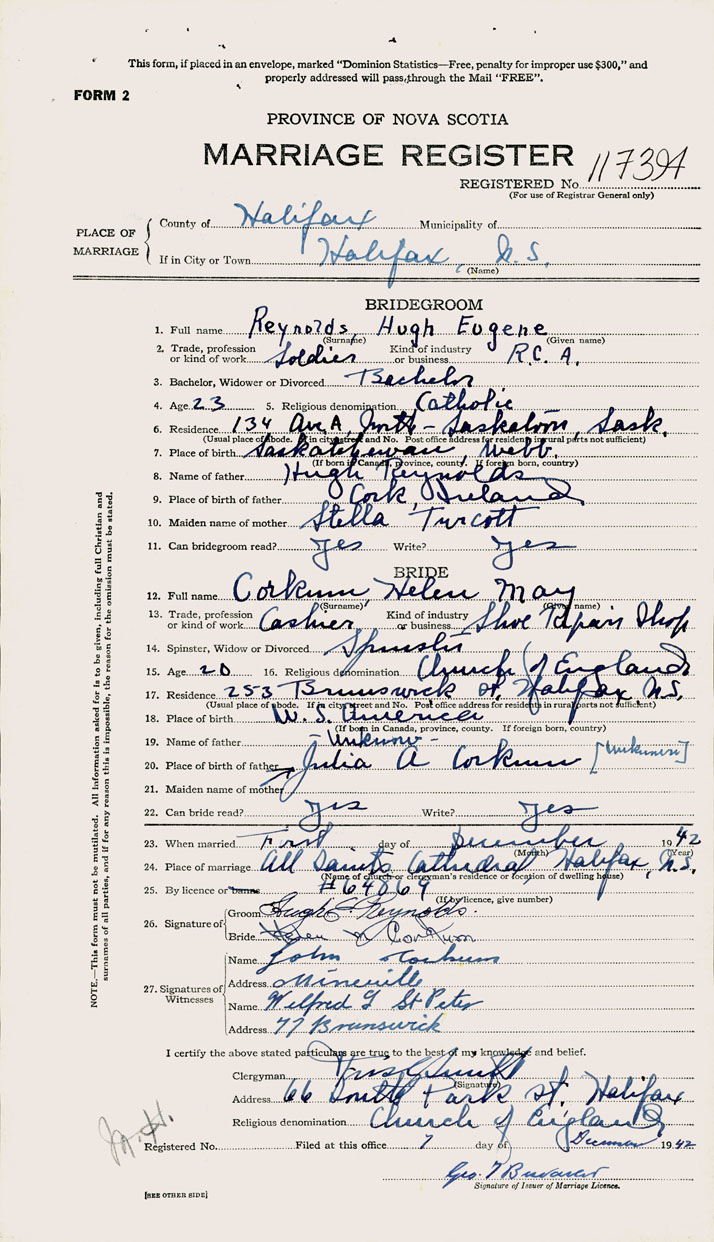 This form, if placed in an envelope, marked "Dominion Statistics—Free, penalty for improper use $300," and
properly addressed will pass through the Mail "FREE".
FORM 2
PROVINCE OF NOVA SCOTIA
MARRIAGE REGISTER
REGISTERED No. 117394
(For use of Registrar General only)
PLACE OF MARRIAGE
County of Halifax Municipality of
If in City or Town Halifax, N.S.
(Name)
BRIDEGROOM
1. Full name Reynolds, Hugh Eugene
(Surname) (Given name)
2. Trade, profession or kind of work Soldier Kind of industry or business R.C.A.
3. Bachelor, Widower or Divorced Bachelor
4. Age 23 5. Religious denomination Catholic
6. Residence 134 Ave. A, North - Saskatoon, Sask.
(Usual place of abode. If in city street and No. Post office address for residents in rural parts not sufficient)
7. Place of birth Saskatchewan, Webb
(If born in Canada, province, county. If foreign born, country)
8. Name of father Hugh Reynolds
9. Place of birth of father Cork, Ireland
10. Maiden name of mother Stella Turcott
11. Can bridegroom read? Yes Write? Yes
BRIDE
12. Full name Corkum, Helen May
(Surname) (Given name)
13. Trade, profession or kind of work Cashier Kind of industry or business Shoe Repair Shop
14. Spinster, Widow or Divorced Spinster
15. Age 20 16. Religious denomination Church of England
17. Residence 253 Brunswick St. Halifax N.S.
(Usual place of abode. If in city street and No. Post office address for residents in rural parts not sufficient)
18. Place of birth U.S. America
(If born in Canada, province, county. If foreign born, country)
19. Name of father - Unknown -
20. Place of birth of father Julia A Corkum [Unknown]
21. Maiden name of mother
22. Can bride read? Yes Write? Yes
23. When married First day of December 1942
(Month) (Year)
24. Place of marriage All Saints Cathedral, Halifax, N.S.
(Name of church or clergyman's residence or location of dwelling house)
25. By licence or banns #64869
(If by licence, give number)
26. Signature of
Groom Hugh E. Reynolds.
Bride Helen M Corkum
27. Signatures of Witnesses
Name John Corkum
Address Mineville
Name Wilfred G St Peter
Address 77 Brunswick
I certify the above stated particulars are true to the best of my knowledge and belief.
Clergyman
(Signature)
Address 66 South Park St. Halifax
Religious denomination Church of England
Registered No. Filed at this office 7 day of December 1942
Geo. T
Signature of Issuer of Marriage Licence.
[SEE OTHER SIDE]
NOTE.—This form must not be mutilated. All information asked for is to be given, including full Christian and
surnames of all parties, and if for any reason this is impossible, the reason for the omission must be stated.